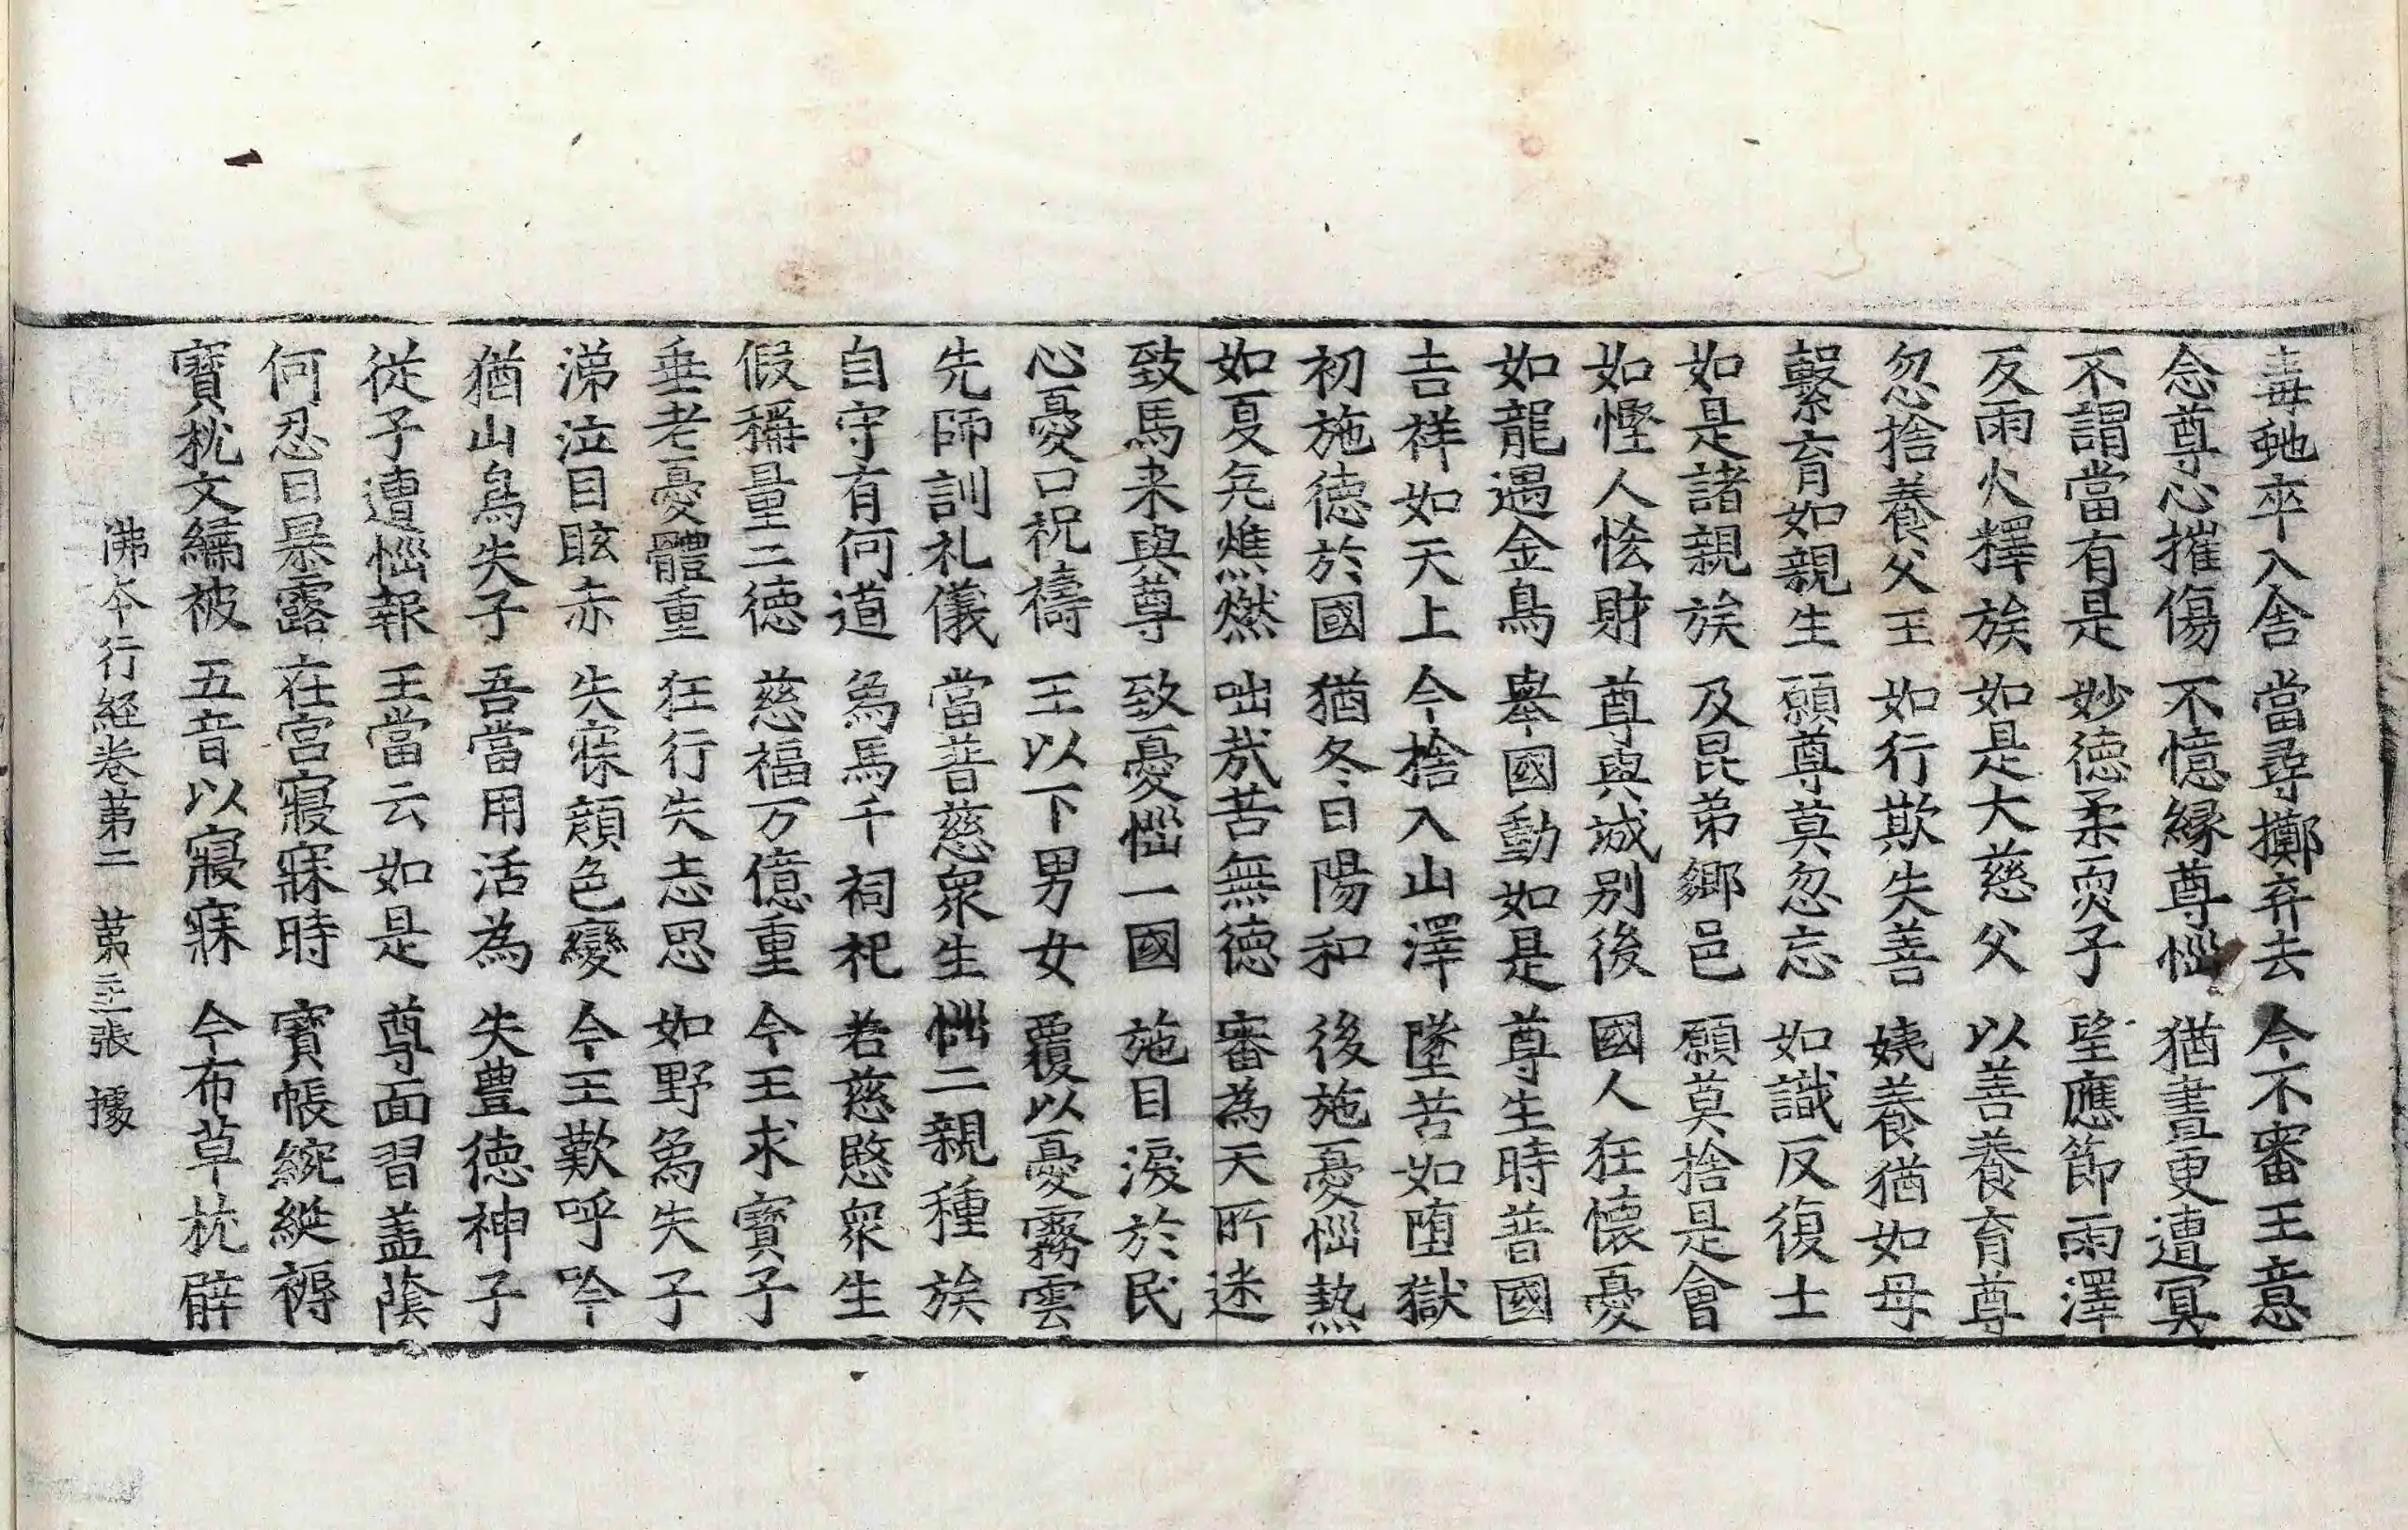 毒虵卒入舍 當尋擲弃去 今不審王意
念尊心摧傷 不憶縁尊惱 猶晝更遭冥
不謂當有是 妙德柔耎子 望應節雨澤
反雨火釋族 如是大慈父 以善養育尊
忽捨養父王 如行欺失善 姨養猶如母
繫育如親生 願尊莫忽忘 如識反復士
如是諸親族 及昆弟鄉邑 願莫捨是會
如慳人悋財 尊與城别後 國人狂懷憂
如龍遇金鳥 舉國動如是 尊生時普國
吉祥如天上 今捨入山澤 墜苦如墮獄
初施德於國 猶冬日陽和 後施憂惱熱
如夏旱燋燃 咄哉苦無德 審為天所迷
致馬来與尊 致憂惱一國 施目淚於民
心憂口祝禱 王以下男女 覆以憂霧雲
先師訓礼儀 當普慈衆生 惱二親種族
自守有何道 象馬千祠祀 若慈愍衆生
假稱量二德 慈福万億重 今王求寶子
垂老憂體重 狂行失志思 如野象失子
涕泣目眩赤 失寐顔色變 今王歎呼吟
猶山鳥失子 吾當用活為 失豊德神子
從子遭惱報 王當云如是 尊面習盖蔭
何忍日暴露 在宫寢寐時 寶帳綩綖褥
寶枕文繡被 五音以寢寐 今布草枕臂
佛本行經卷苐二 苐三張 據